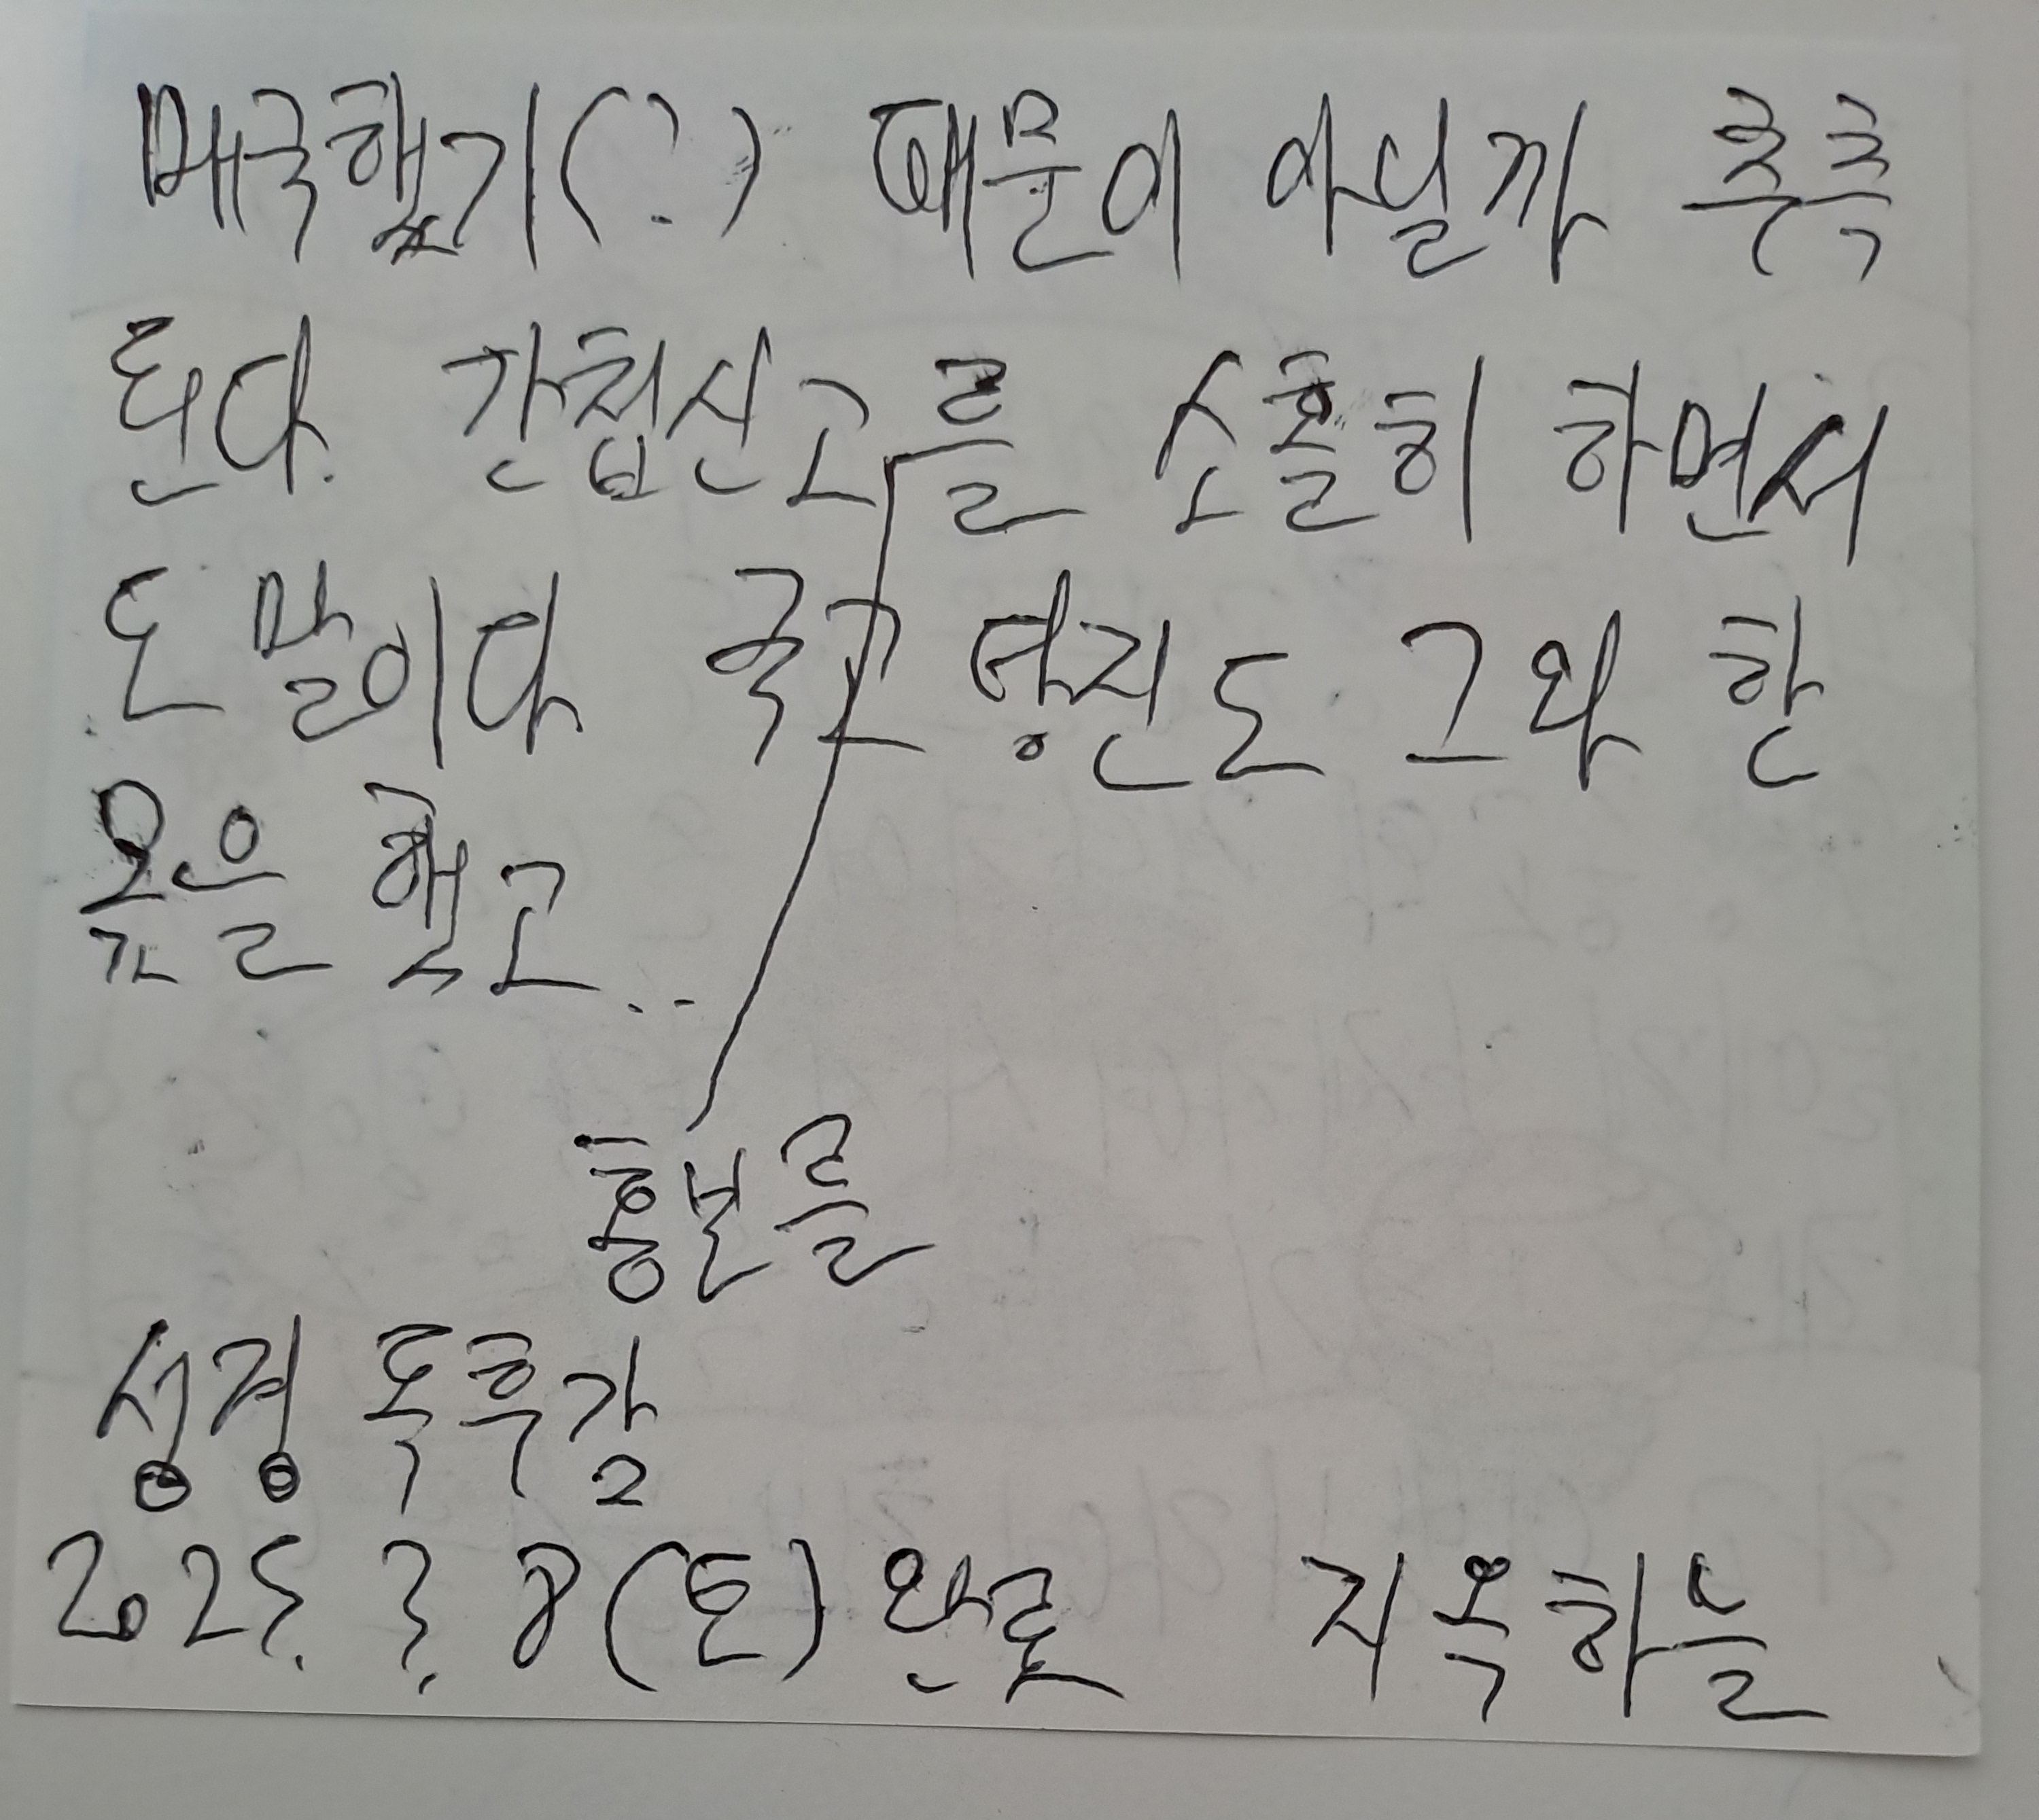 매국했기(?) 때문이 아닐까 추측
된다. 간첩신고를 소홀히 하면서
도 말이다. 국고 탕진도 그와 한
몫을 했고..
홍보를
성경 독후감
2025. 3. 8(토) 완료 지옥하늘